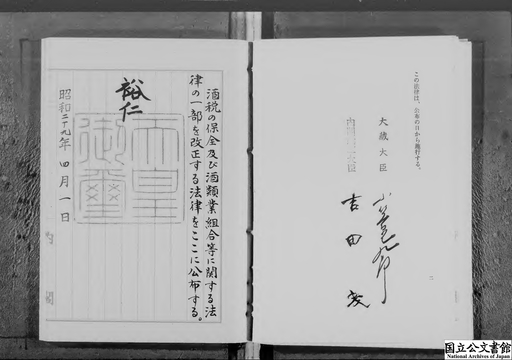 この法律は、公布の日から施行する。
大蔵大臣 小笠原三九郎
内閣総理大臣 吉田茂
二
酒税の保全及び酒類業組合等に関する法
律の一部を改正する法律をここに公布する。
裕仁
天皇
御璽
昭和二十九年四月一日
国立公文書館
National Archives of Japan